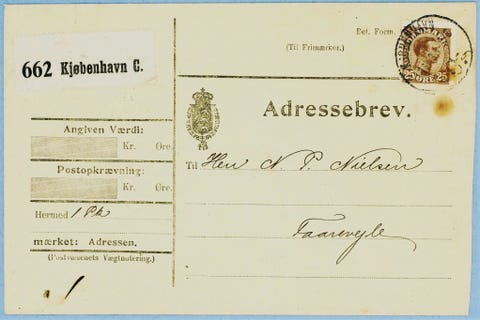 Bet. Form.
(Til Frimærker.)
KJØBENHAVN
DANMARK
25 ØRE 25
662 Kjøbenhavn C.
Adressebrev.
Angiven Værdi:
Kr. Øre.
Postopkrævning:
Kr. Øre.
Til Herr N. P. Nielsen
Hermed 1 Pk
Faarevejle
mærket: Adressen.
(Postvæsenets Vægtnotering.)